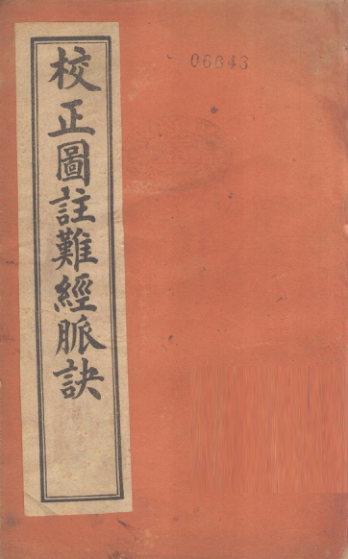 校正圖註難經脈訣
06643